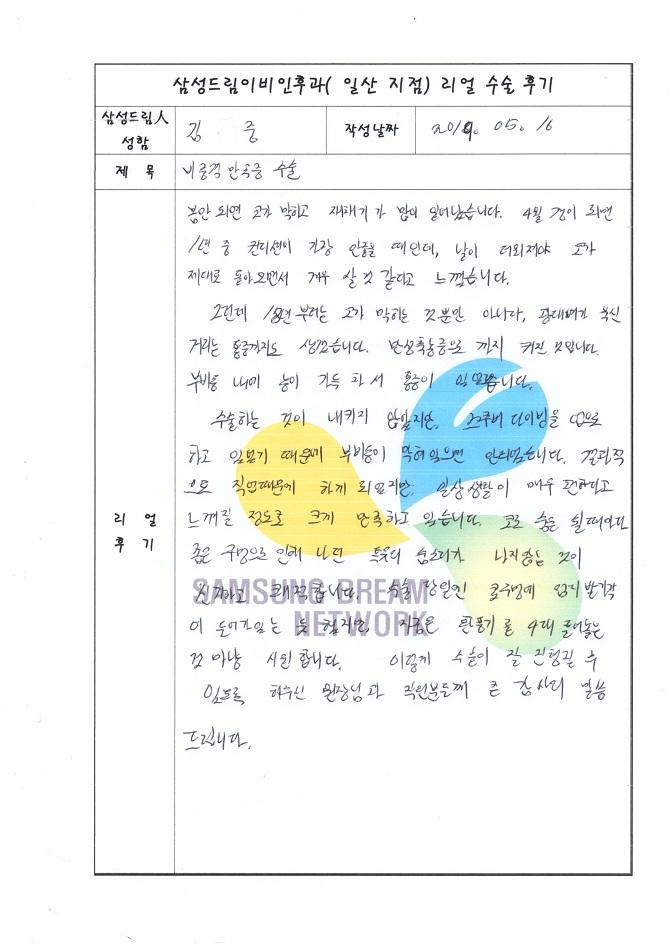 삼성드림이비인후과( 일산 지점) 리얼 수술 후기
삼성드림人
성함
김 중
작성날짜
2019. 05. 16
제 목
비중격 만곡증 수술
봄만 되면 코가 막히고 재채기가 많이 일어났습니다. 4월 경이 되면
1년 중 컨디션이 가장 안좋을 때인데, 날이 더워져야 코가
제대로 돌아오면서 겨우 살 것 같다고 느꼈습니다.
그런데 부터는 코가 막히는 것 뿐만 아니라, 광대뼈가 욱신
거리는 통증까지도 생겼습니다. 만성축농증으로 까지 커진 것입니다.
부비동 내에 농이 가득 차서 통증이 있었습니다.
수술하는 것이 내키지 않았지만, 스쿠버 다이빙을 업으로
하고 있었기 때문에 부비동이 막혀있으면 안되었습니다. 결과적
으로 직업때문에 하게 되었지만, 일상생활이 매우 편하다고
느껴질 정도로 크게 만족하고 있습니다. 코로 숨을 쉴때마다
좁은 구멍으로 인해 나던 특유의 숨소리가 나지않는 것이
신기하고 쾌적합니다. 수술 당일엔 콧구멍에 엄지발가락
이 들어가있는 듯 했지만, 지금은 환풍기를 4대 틀어놓은
것 마냥 시원합니다. 이렇게 수술이 잘 진행될 수
있도록 해주신 원장님과 직원분들께 큰 감사의 말씀
드립니다.
리 얼
후 기
SAMSUNG DREAM
NETWORK